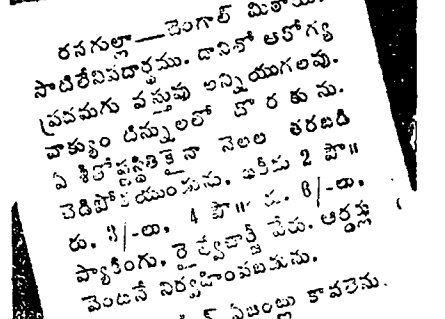 రసగుల్లా—బెంగాల్ మిఠాయి.
సాటిలేనిపదార్థము. దానిలో ఆరోగ్య
ప్రదమగు వస్తువు లన్నియుగలవు.
వాక్యుం టిన్నులలో దొ ర కు ను.
ఏ శీతోష్ణస్థితికైనా నెలల తరబడి
చెడిపోకయుండును. ఖరీదు 2 పౌ॥
రు. 3/-లు. 4 పౌ॥ రు. 6/-లు.
ప్యాకింగు, రైల్వేచార్జీ వేరు. ఆర్డర్లు
వెంటనే నిర్వహింపబడును.
ఏజంట్లు కావలెను.